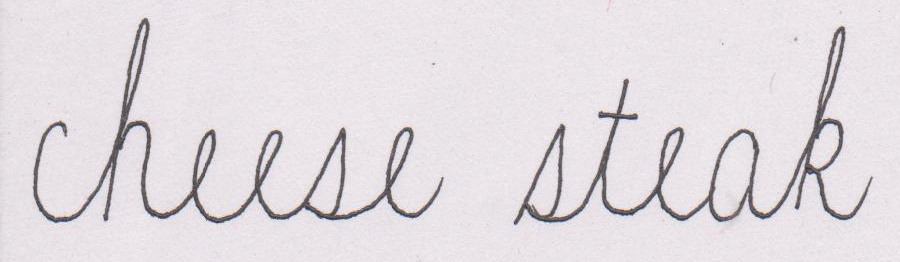 cheese steak